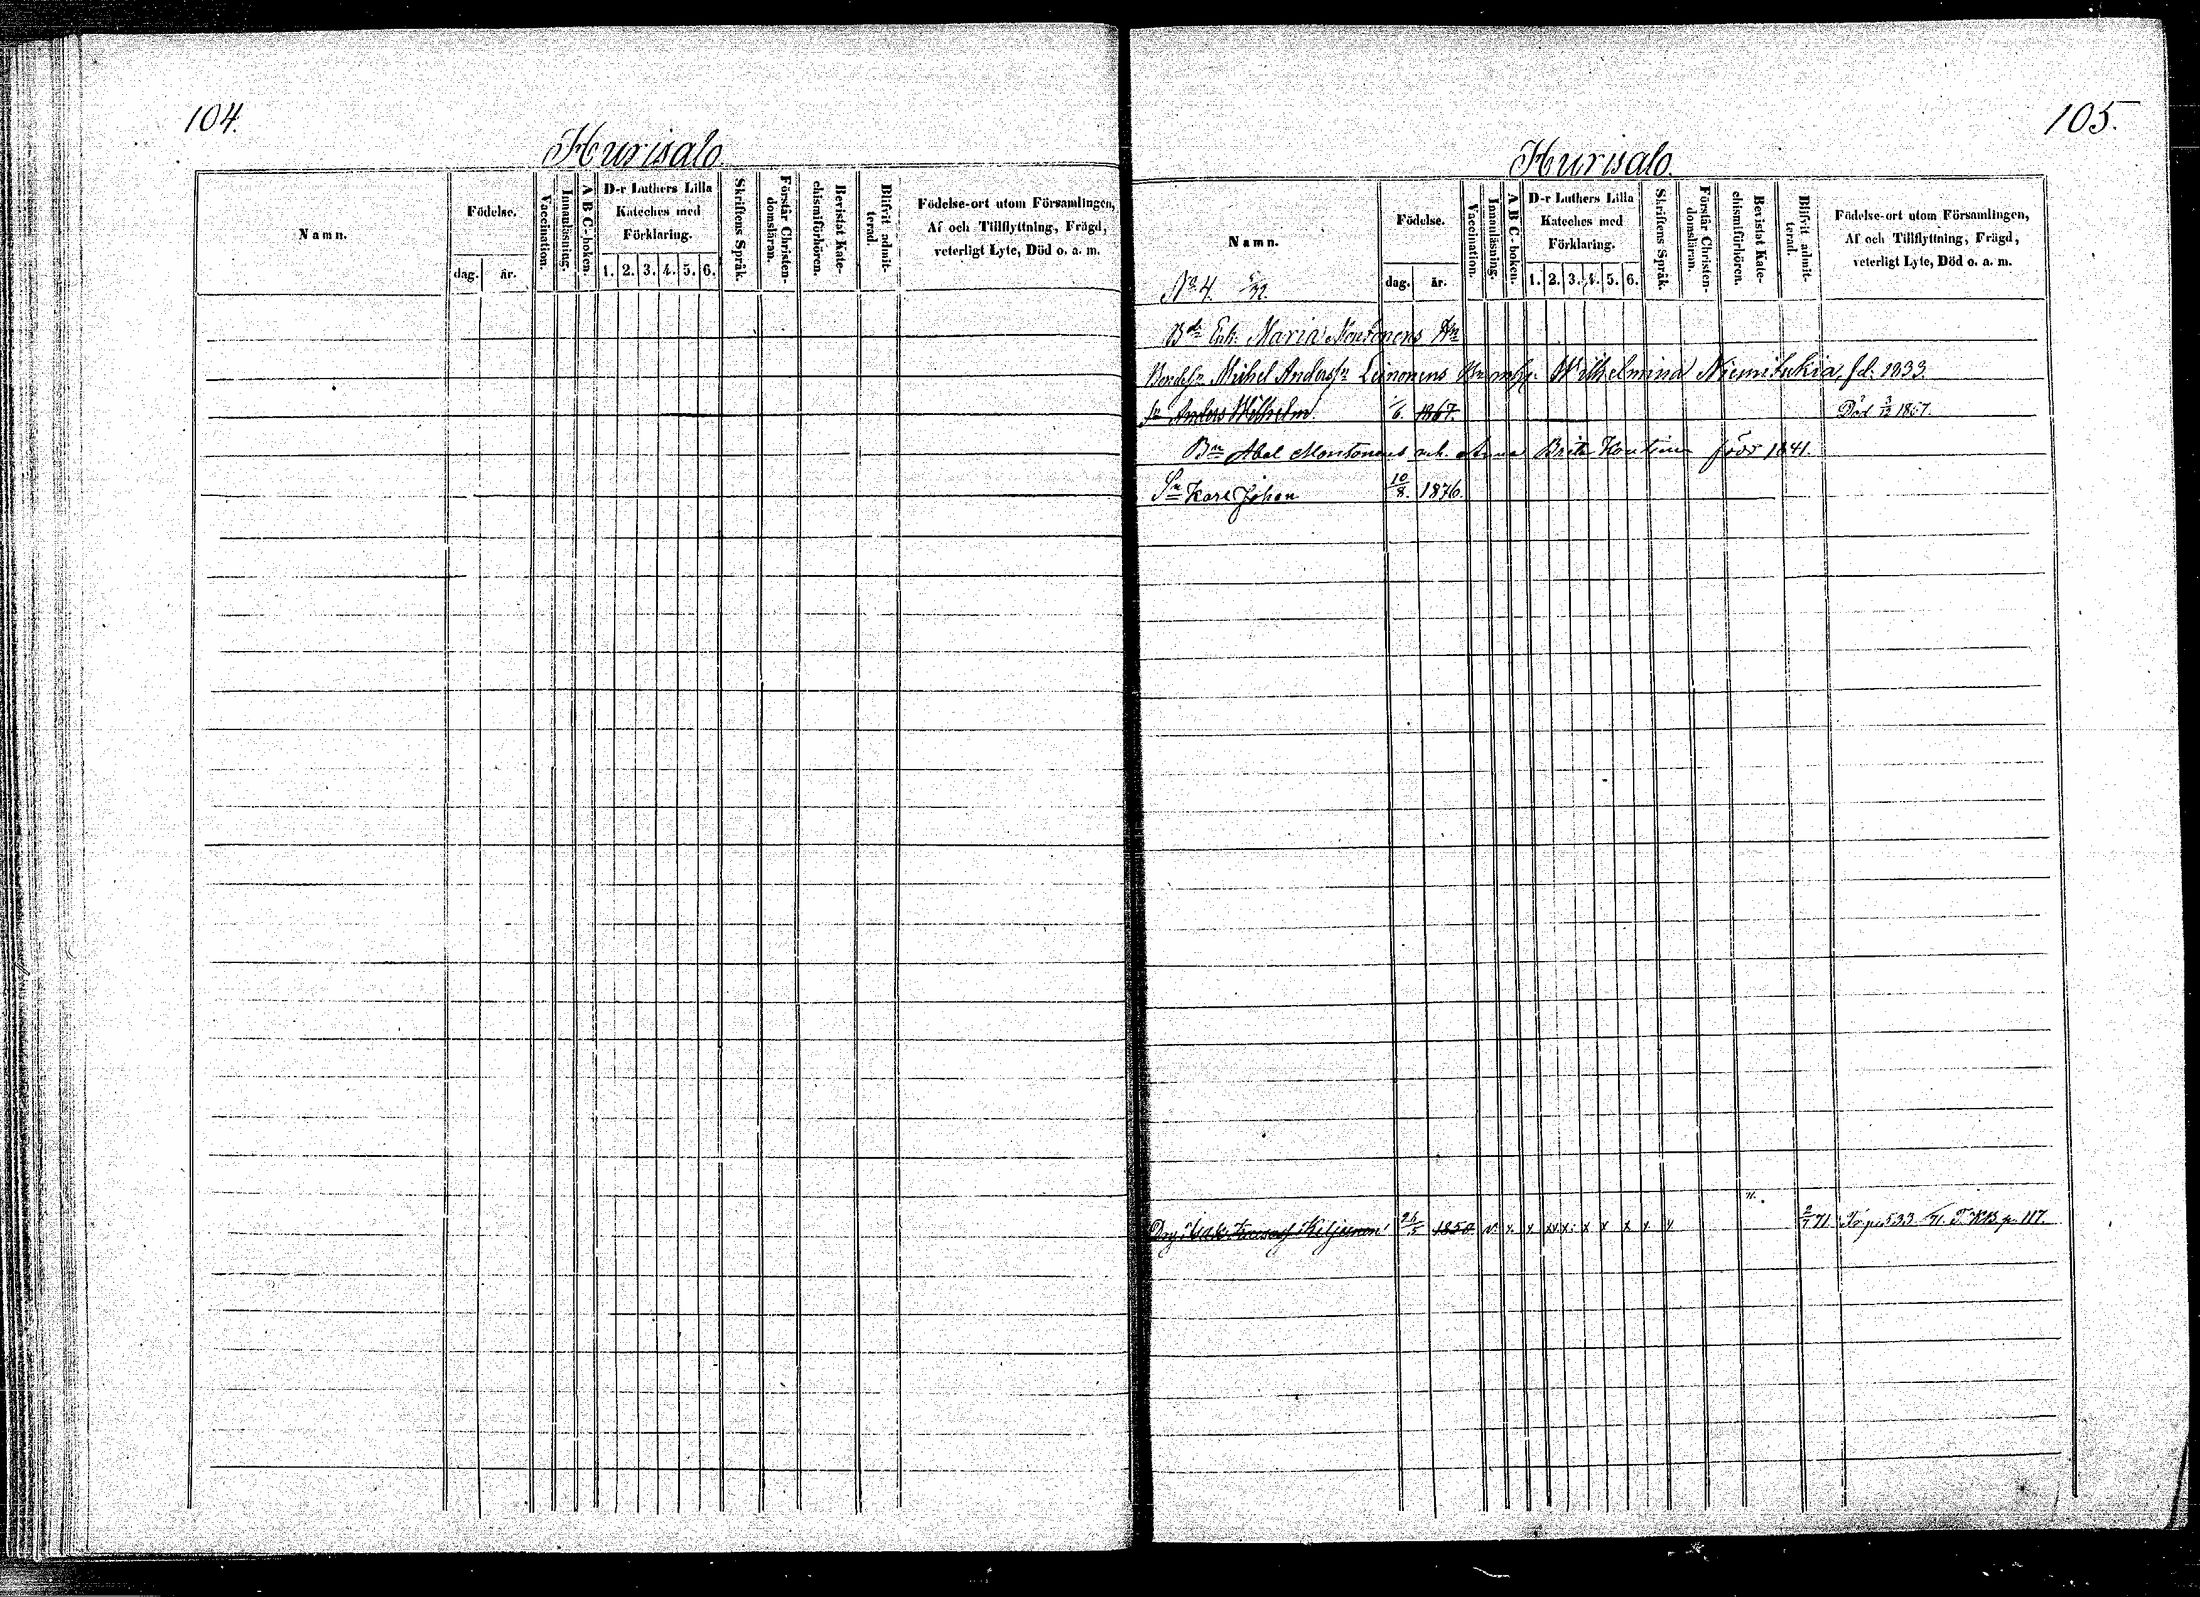 104.
Hurisalo
Namn.
Födelse.
dag. år.
Vaccination.
Innanläsning.
A B C-boken.
D-r Luthers Lilla
Kateches med
Förklaring.
1. 2. 3. 4. 5. 6.
Skriftens Språk.
Förstår Christen-
domsläran.
Bevistat Kate-
chismiförhören.
Blifvit admit-
terad.
Födelse-ort utom Församlingen,
Af och Tillflyttning, Frägd,
veterligt Lyte, Död o. a. m.
105.
Hurisalo.
Namn.
Födelse.
dag. år.
Vaccination.
Innanläsning.
A B C-boken.
D-r Luthers Lilla
Kateches med
Förklaring.
1. 2. 3. 4. 5. 6.
Skriftens Språk.
Förstår Christen-
domsläran.
Bevistat Kate-
chismiförhören.
Blifvit admit-
terad.
Födelse-ort utom Församlingen,
Af och Tillflyttning, Frägd,
veterligt Lyte, Död o. a. m.
No 4.
Enk. Maria Montonens
Michel Anderss:n Leinonens Wilhelmina Niemitukia fd. 1833.
Sn Anders Wilhelm 1/6. 1867. Död 1867.
Bn Abel Montonens Anna Brita född 1841.
Sn Karl Johan 10/8. 1876.
1850 x x x x x x x 2/7 71 Tr. p. 533 71. T. KB. p. 117.